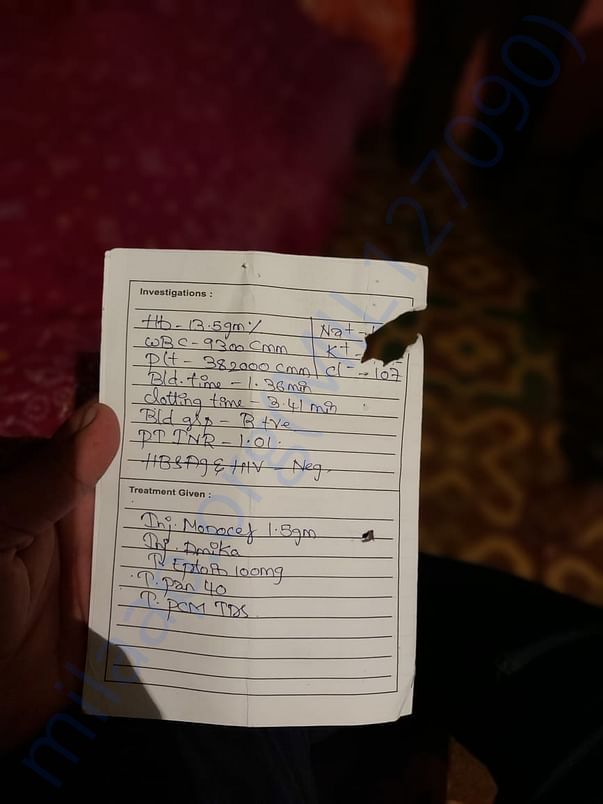 Investigations :
Hb - 13.5gm%
Na+ -
WBC - 9300 Cmm
K+ -
Plt - 382000 Cmm
Cl- - 107
Bld. time - 1.36 min
clotting time - 3.41 min
Bld grp - B +ve
PT INR - 1.01
HBSAg & HIV - Neg.
Treatment Given :
Inj. Monocef 1.5gm
Inj. Amika
T. Eptoin 100mg
T. Pan 40
T. PCM TDS
milaap.org(MIL127090)